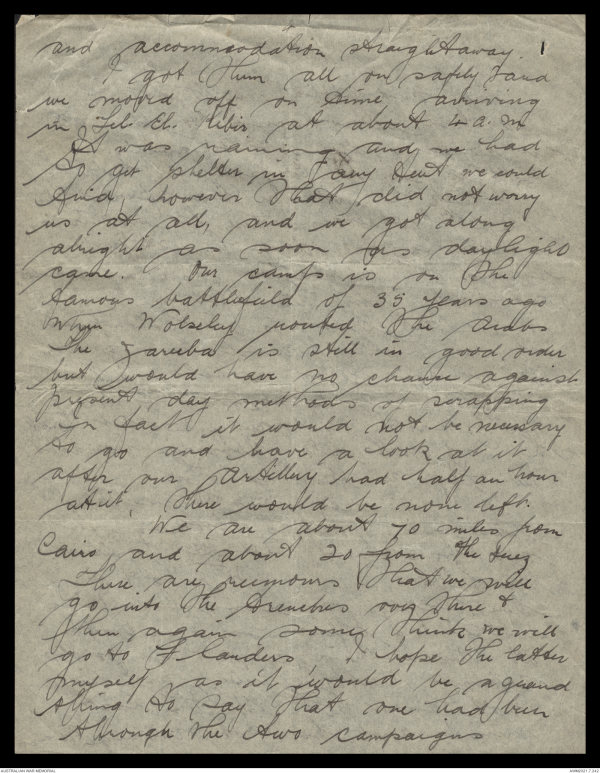 and accommodation straightaway 1
I got them all on safely and
we moved off on time arriving
in Tel. El. Kebir at about 4 a.m
It was raining and we had
to get shelter in any tent we could
find, however that did not worry
us at all, and we got along
alright as soon as daylight
came. Our camp is on the
famous battlefield of 35 years ago
when Wolseley routed the Arabs
The Zareeba is still in good order
but would have no chance against
present day methods of scrapping
in fact it would not be necessary
to go and have a look at it
after our Artillery had half an hour
at it, there would be none left.
We are about 70 miles from
Cairo and about 20 from the Suez
There are reumours that we will
go into the trenches over there &
then again some think we will
go to Flanders, I hope the latter
myself as it would be a grand
thing to say that one had been
through the two campaigns
AUSTRALIAN WAR MEMORIAL
AWM2021.7.242